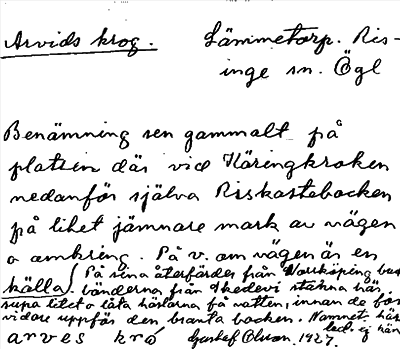 Arvids krog. Lämmetorp. Ris-
inge sn. Ögl
Benämning sen gammalt på
platsen där vid Käringkroken
nedanför själva Riskastebacken
på litet jämnare mark av vägen
o omkring. På v. om vägen är en
källa. På sina återfärder från Norrköping bru
bönderna från Skedevi stanna här
supa litet o låta hästarna få vatten, innan de för
vidare uppför den branta backen. Namnet här
arves kró Gustaf Olsson. 1927.